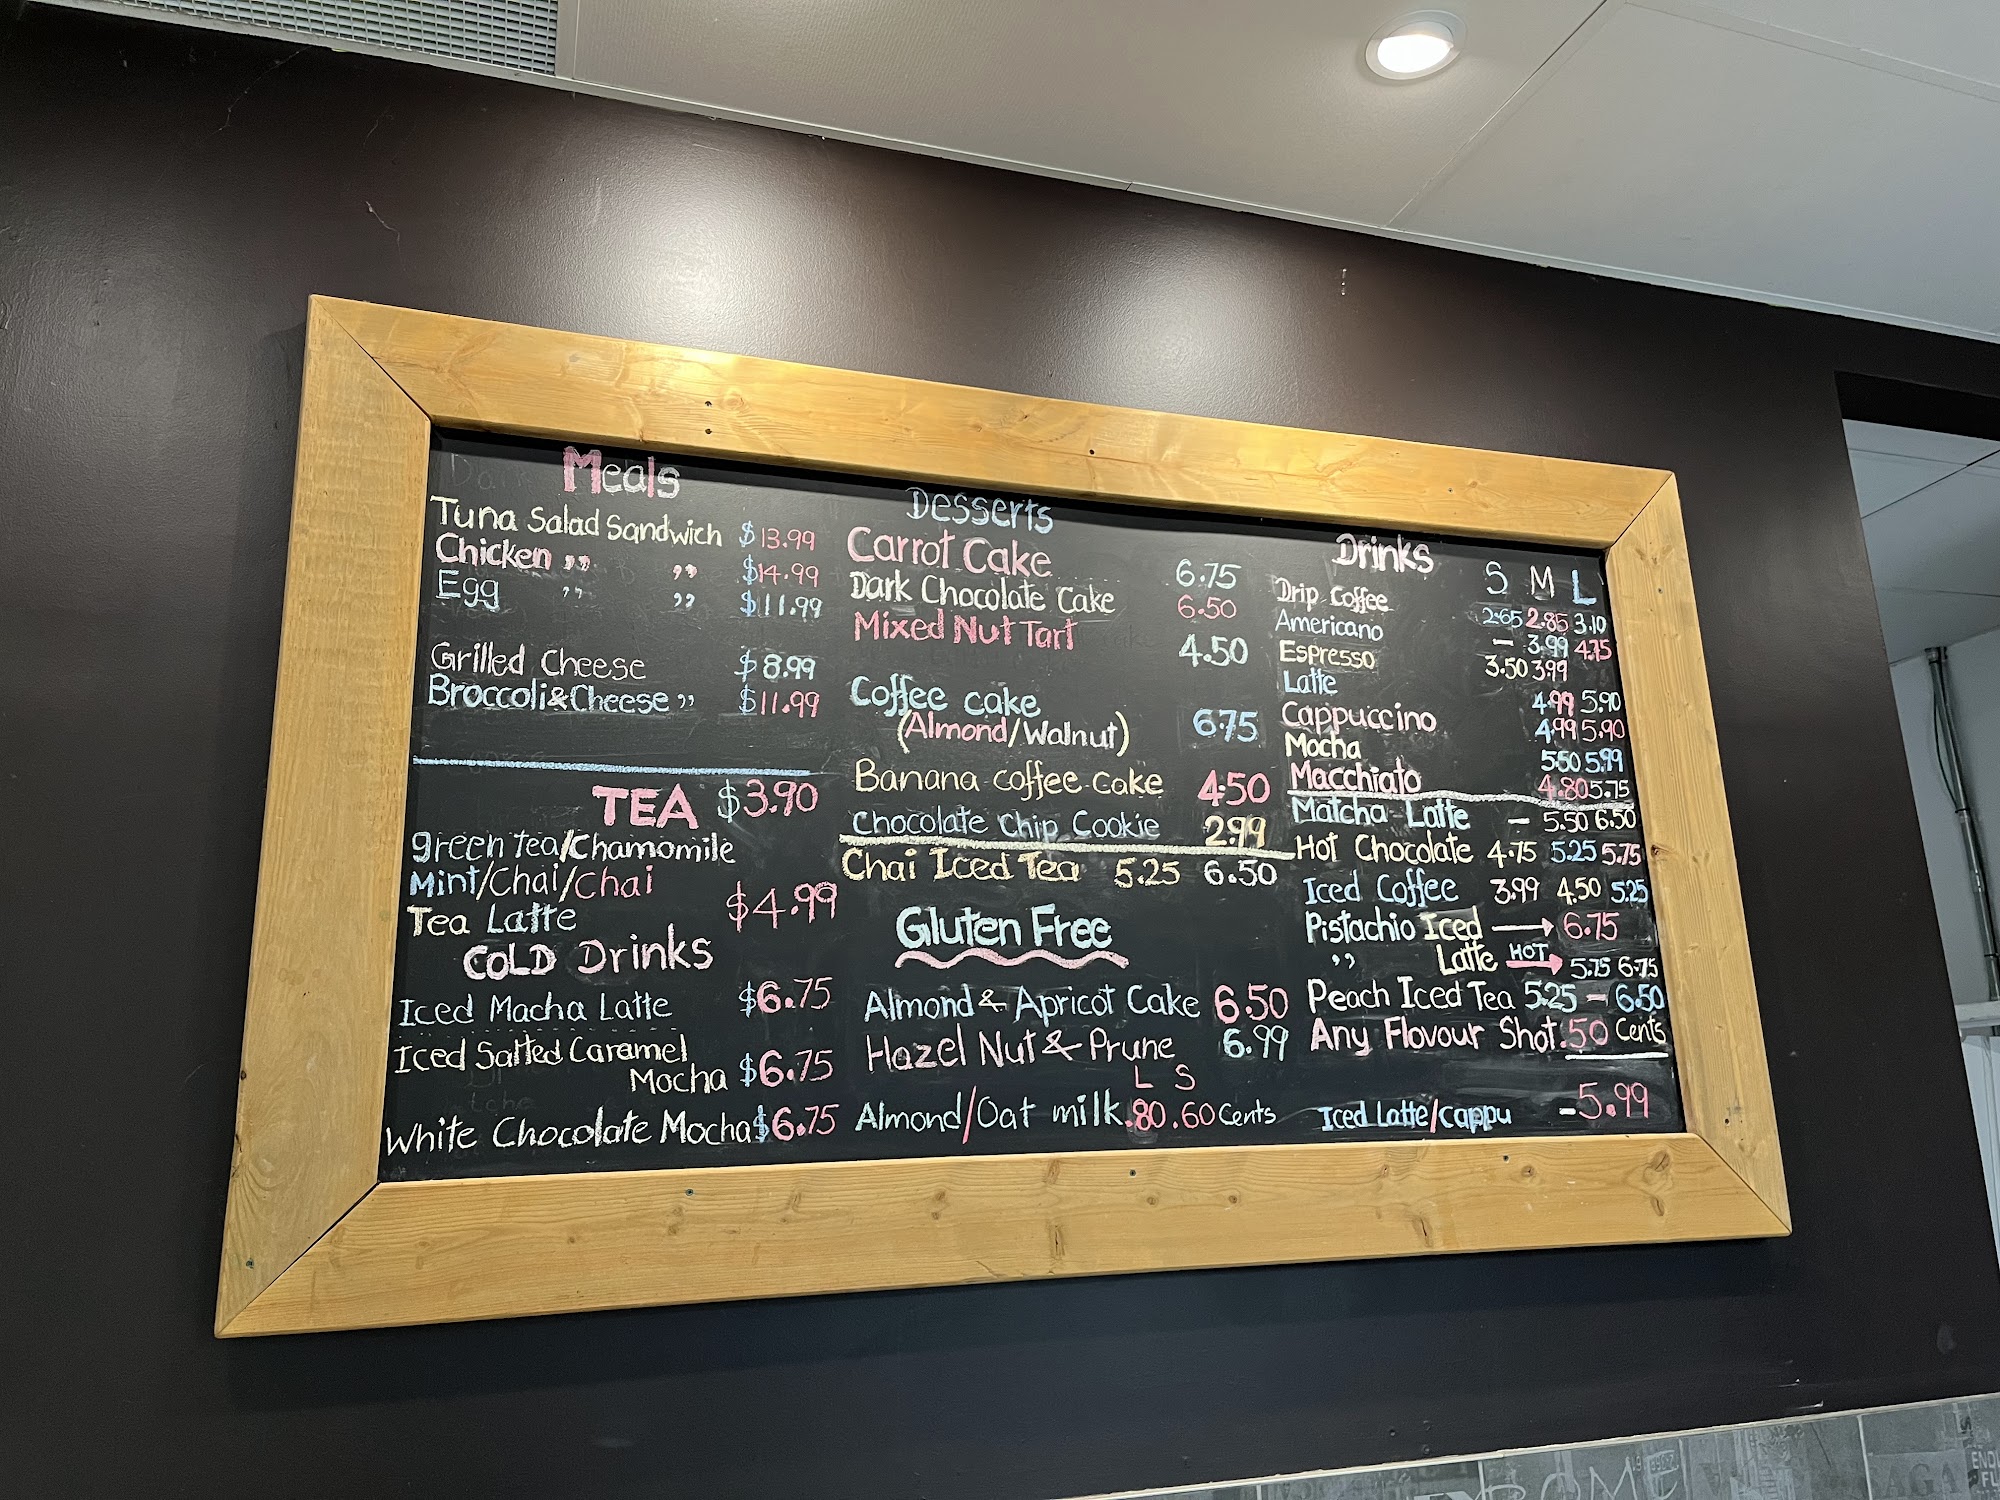 Meals
Tuna Salad Sandwich $13.99
Chicken ,, ,, $14.99
Egg ,, ,, $11.99
Grilled Cheese $8.99
Broccoli & Cheese ,, $11.99
TEA $3.90
green Tea/Chamomile
Mint/Chai/Chai
Tea Latte $4.99
COLD Drinks
Iced Macha Latte $6.75
Iced Salted Caramel
Mocha $6.75
White Chocolate Mocha $6.75
Desserts
Carrot Cake 6.75
Dark Chocolate Cake 6.50
Mixed Nut Tart 4.50
Coffee cake
(Almond/Walnut) 6.75
Banana coffee cake 4.50
Chocolate Chip Cookie 2.99
Chai Iced Tea 5.25 6.50
Gluten Free
Almond & Apricot Cake 6.50
Hazel Nut & Prune 6.99
L S
Almond/Oat milk .80 .60 Cents
Drinks S M L
Drip Coffee 2.65 2.85 3.10
Americano - 3.99 4.75
Espresso 3.50 3.99
Latte 4.99 5.90
Cappuccino 4.99 5.90
Mocha 5.50 5.99
Macchiato 4.80 5.75
Matcha Latte - 5.50 6.50
Hot Chocolate 4.75 5.25 5.75
Iced Coffee 3.99 4.50 5.25
Pistachio Iced → 6.75
,, Latte HOT → 5.75 6.75
Peach Iced Tea 5.25 - 6.50
Any Flavour Shot .50 Cents
Iced Latte/cappu - 5.99